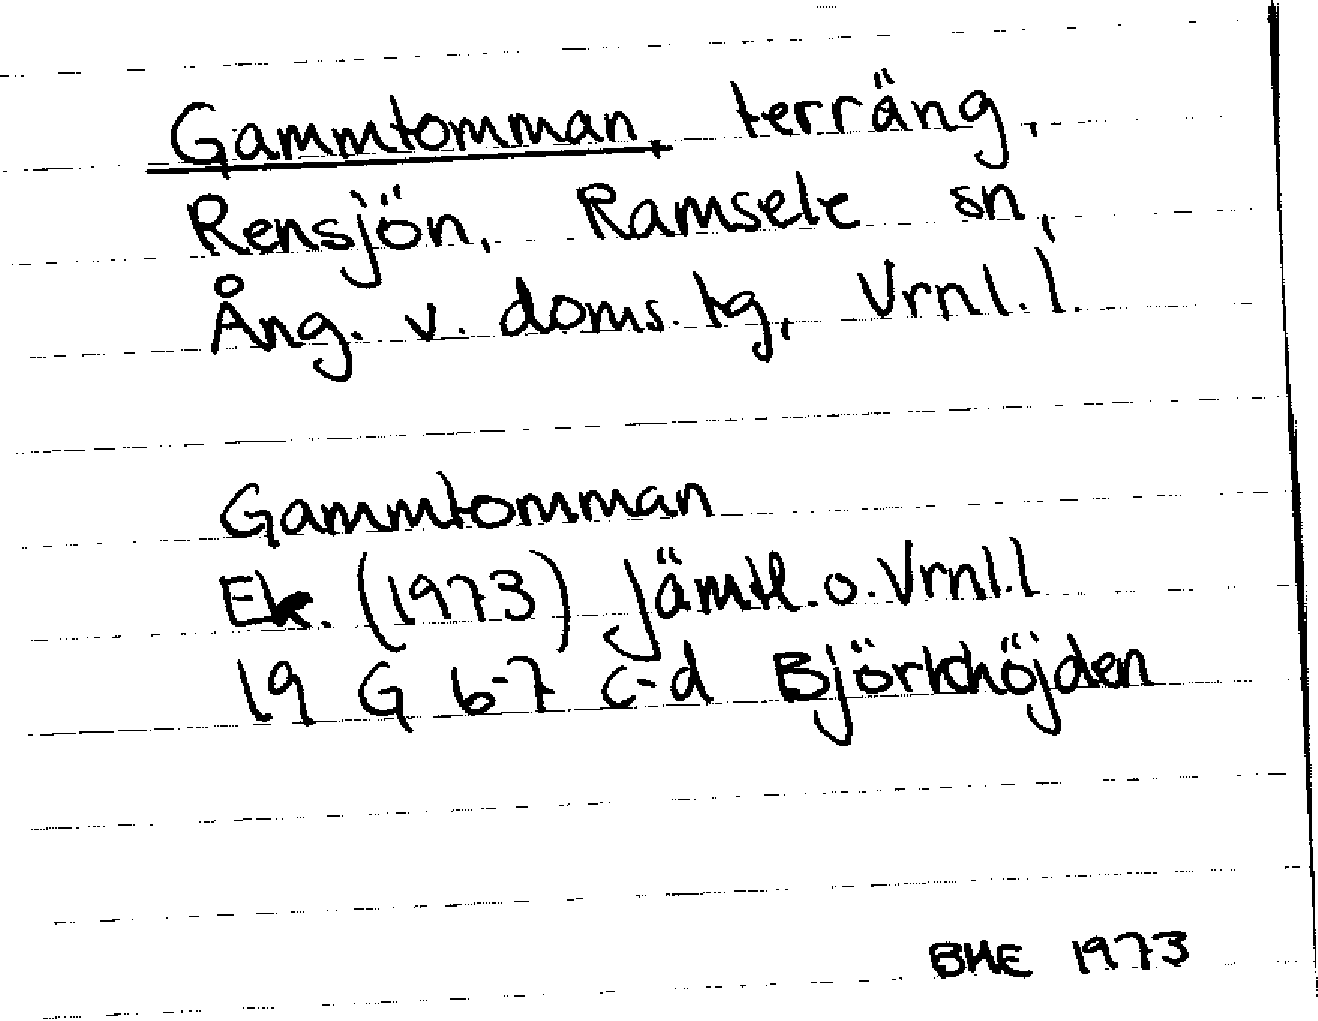 Gammtomman, terräng,
Rensjön, Ramsele sn,
Ång. v. doms. tg, Vrnl. l.
Gammtomman
Ek. (1973) Jämtl. o. Vrnl. l
19 G 6-7 c-d Björkhöjden
BHE 1973